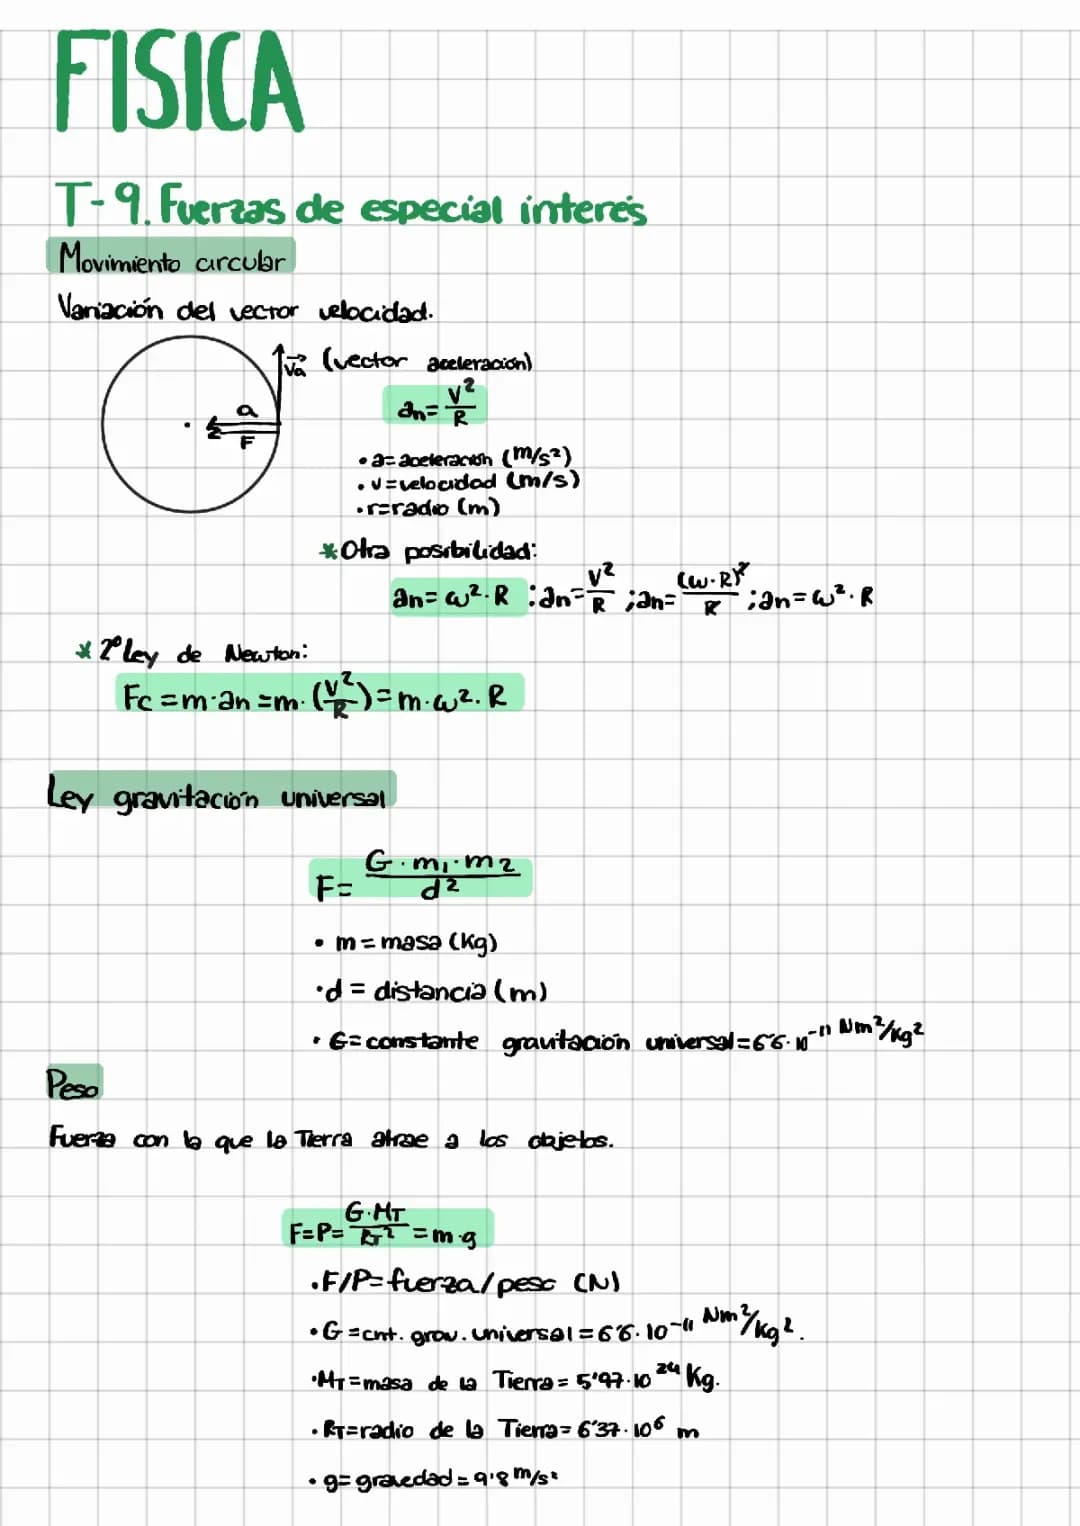 FISICA
T-9. Fuerzas de especial interés
Movimiento circular
Variación del vector velocidad.
Va (vector aceleración)
an= V²/R
a
F
• a= aceleración (m/s²)
• v=velocidad (m/s)
• r=radio (m)
* Otra posibilidad:
an= ω²·R : an= V²/R ; an= (ω·R)²/R ; an= ω²·R
* 2º Ley de Newton:
Fc =m·an =m·(V²/R)= m·ω²·R
Ley gravitación universal
F= G·m₁·m₂/d²
• m = masa (Kg)
• d = distancia (m)
• G= constante gravitación universal=6'6·10⁻¹¹ Nm²/Kg²
Peso
Fuerza con la que la Tierra atrae a los objetos.
F=P= G·MT/RT² = m·g
• F/P= fuerza/peso (N)
• G =cnt. grav. universal = 6'6·10⁻¹¹ Nm²/Kg².
• MT=masa de la Tierra = 5'97·10²⁴ Kg.
• RT=radio de la Tierra= 6'37·10⁶ m
• g= gravedad = 9'8 m/s²